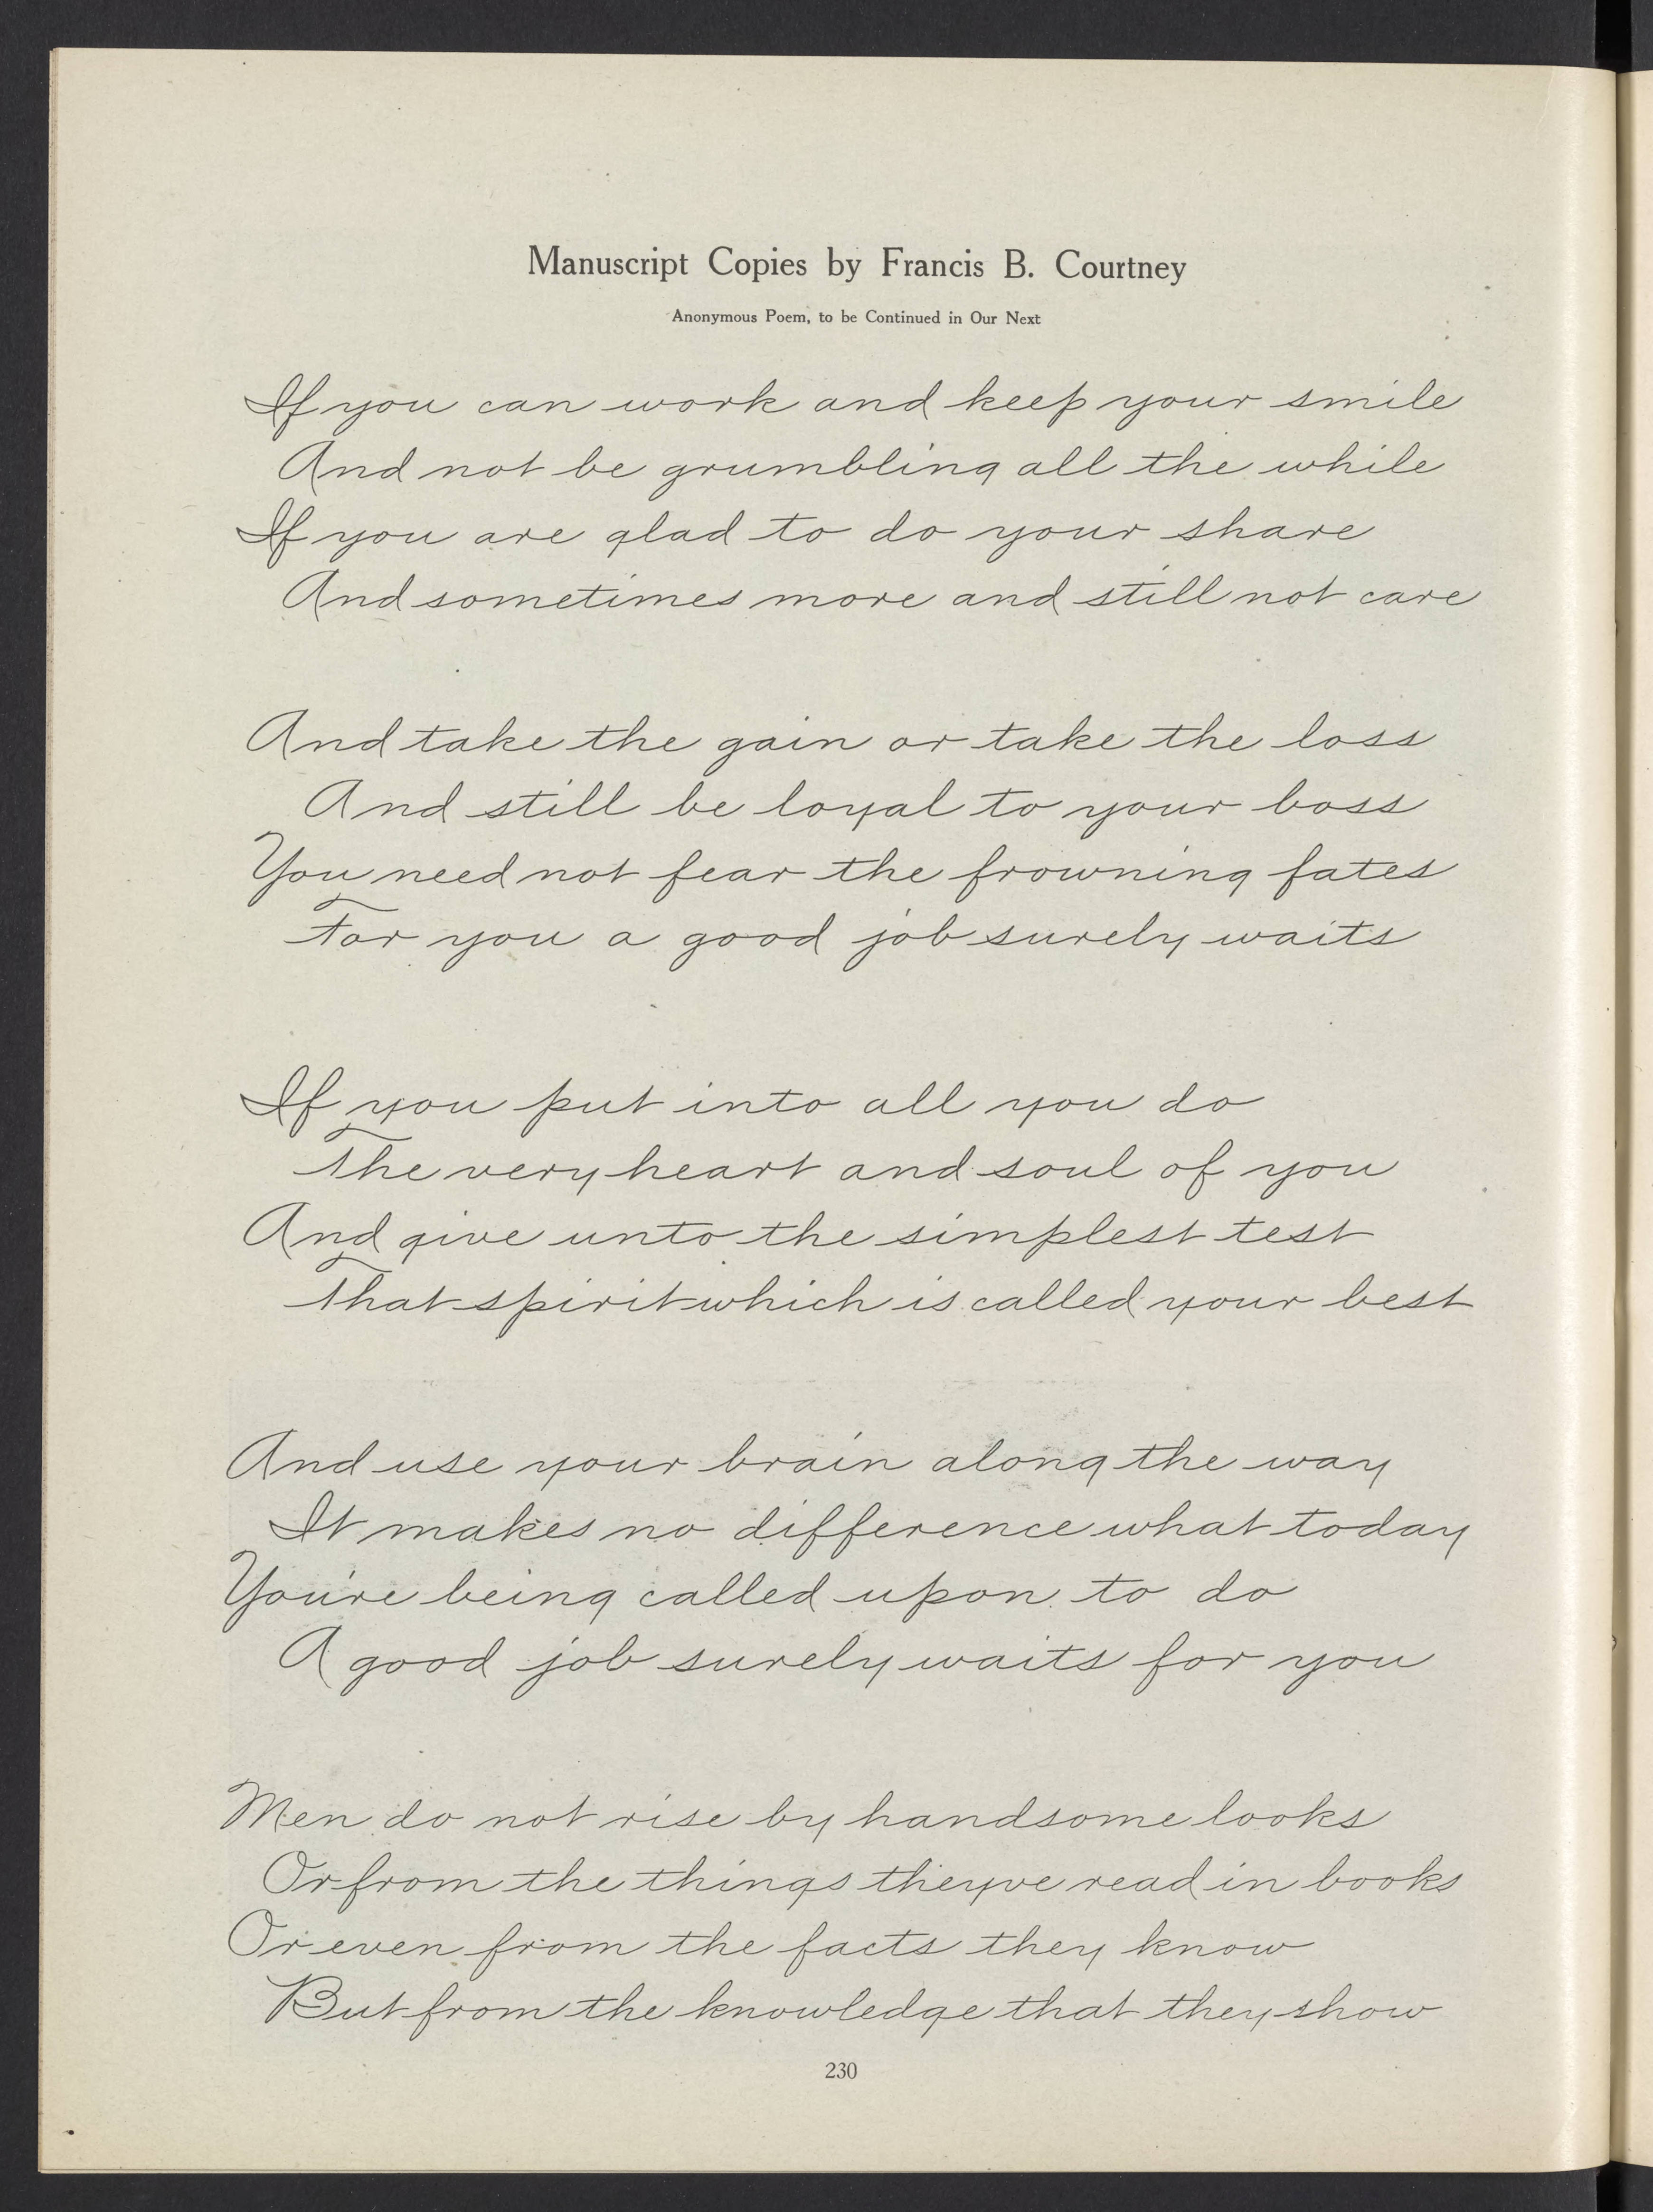 Manuscript Copies by Francis B. Courtney
Anonymous Poem, to be Continued in Our Next
If you can work and keep your smile
And not be grumbling all the while
If you are glad to do your share
And sometimes more and still not care
And take the gain or take the loss
And still be loyal to your boss
You need not fear the frowning fates
For you a good job surely waits
If you put into all you do
The very heart and soul of you
And give unto the simplest test
That spirit which is called your best
And use your brain along the way
It makes no difference what today
You're being called upon to do
A good job surely waits for you
Men do not rise by handsome looks
Or from the things they've read in books
Or even from the facts they know
But from the knowledge that they show
230